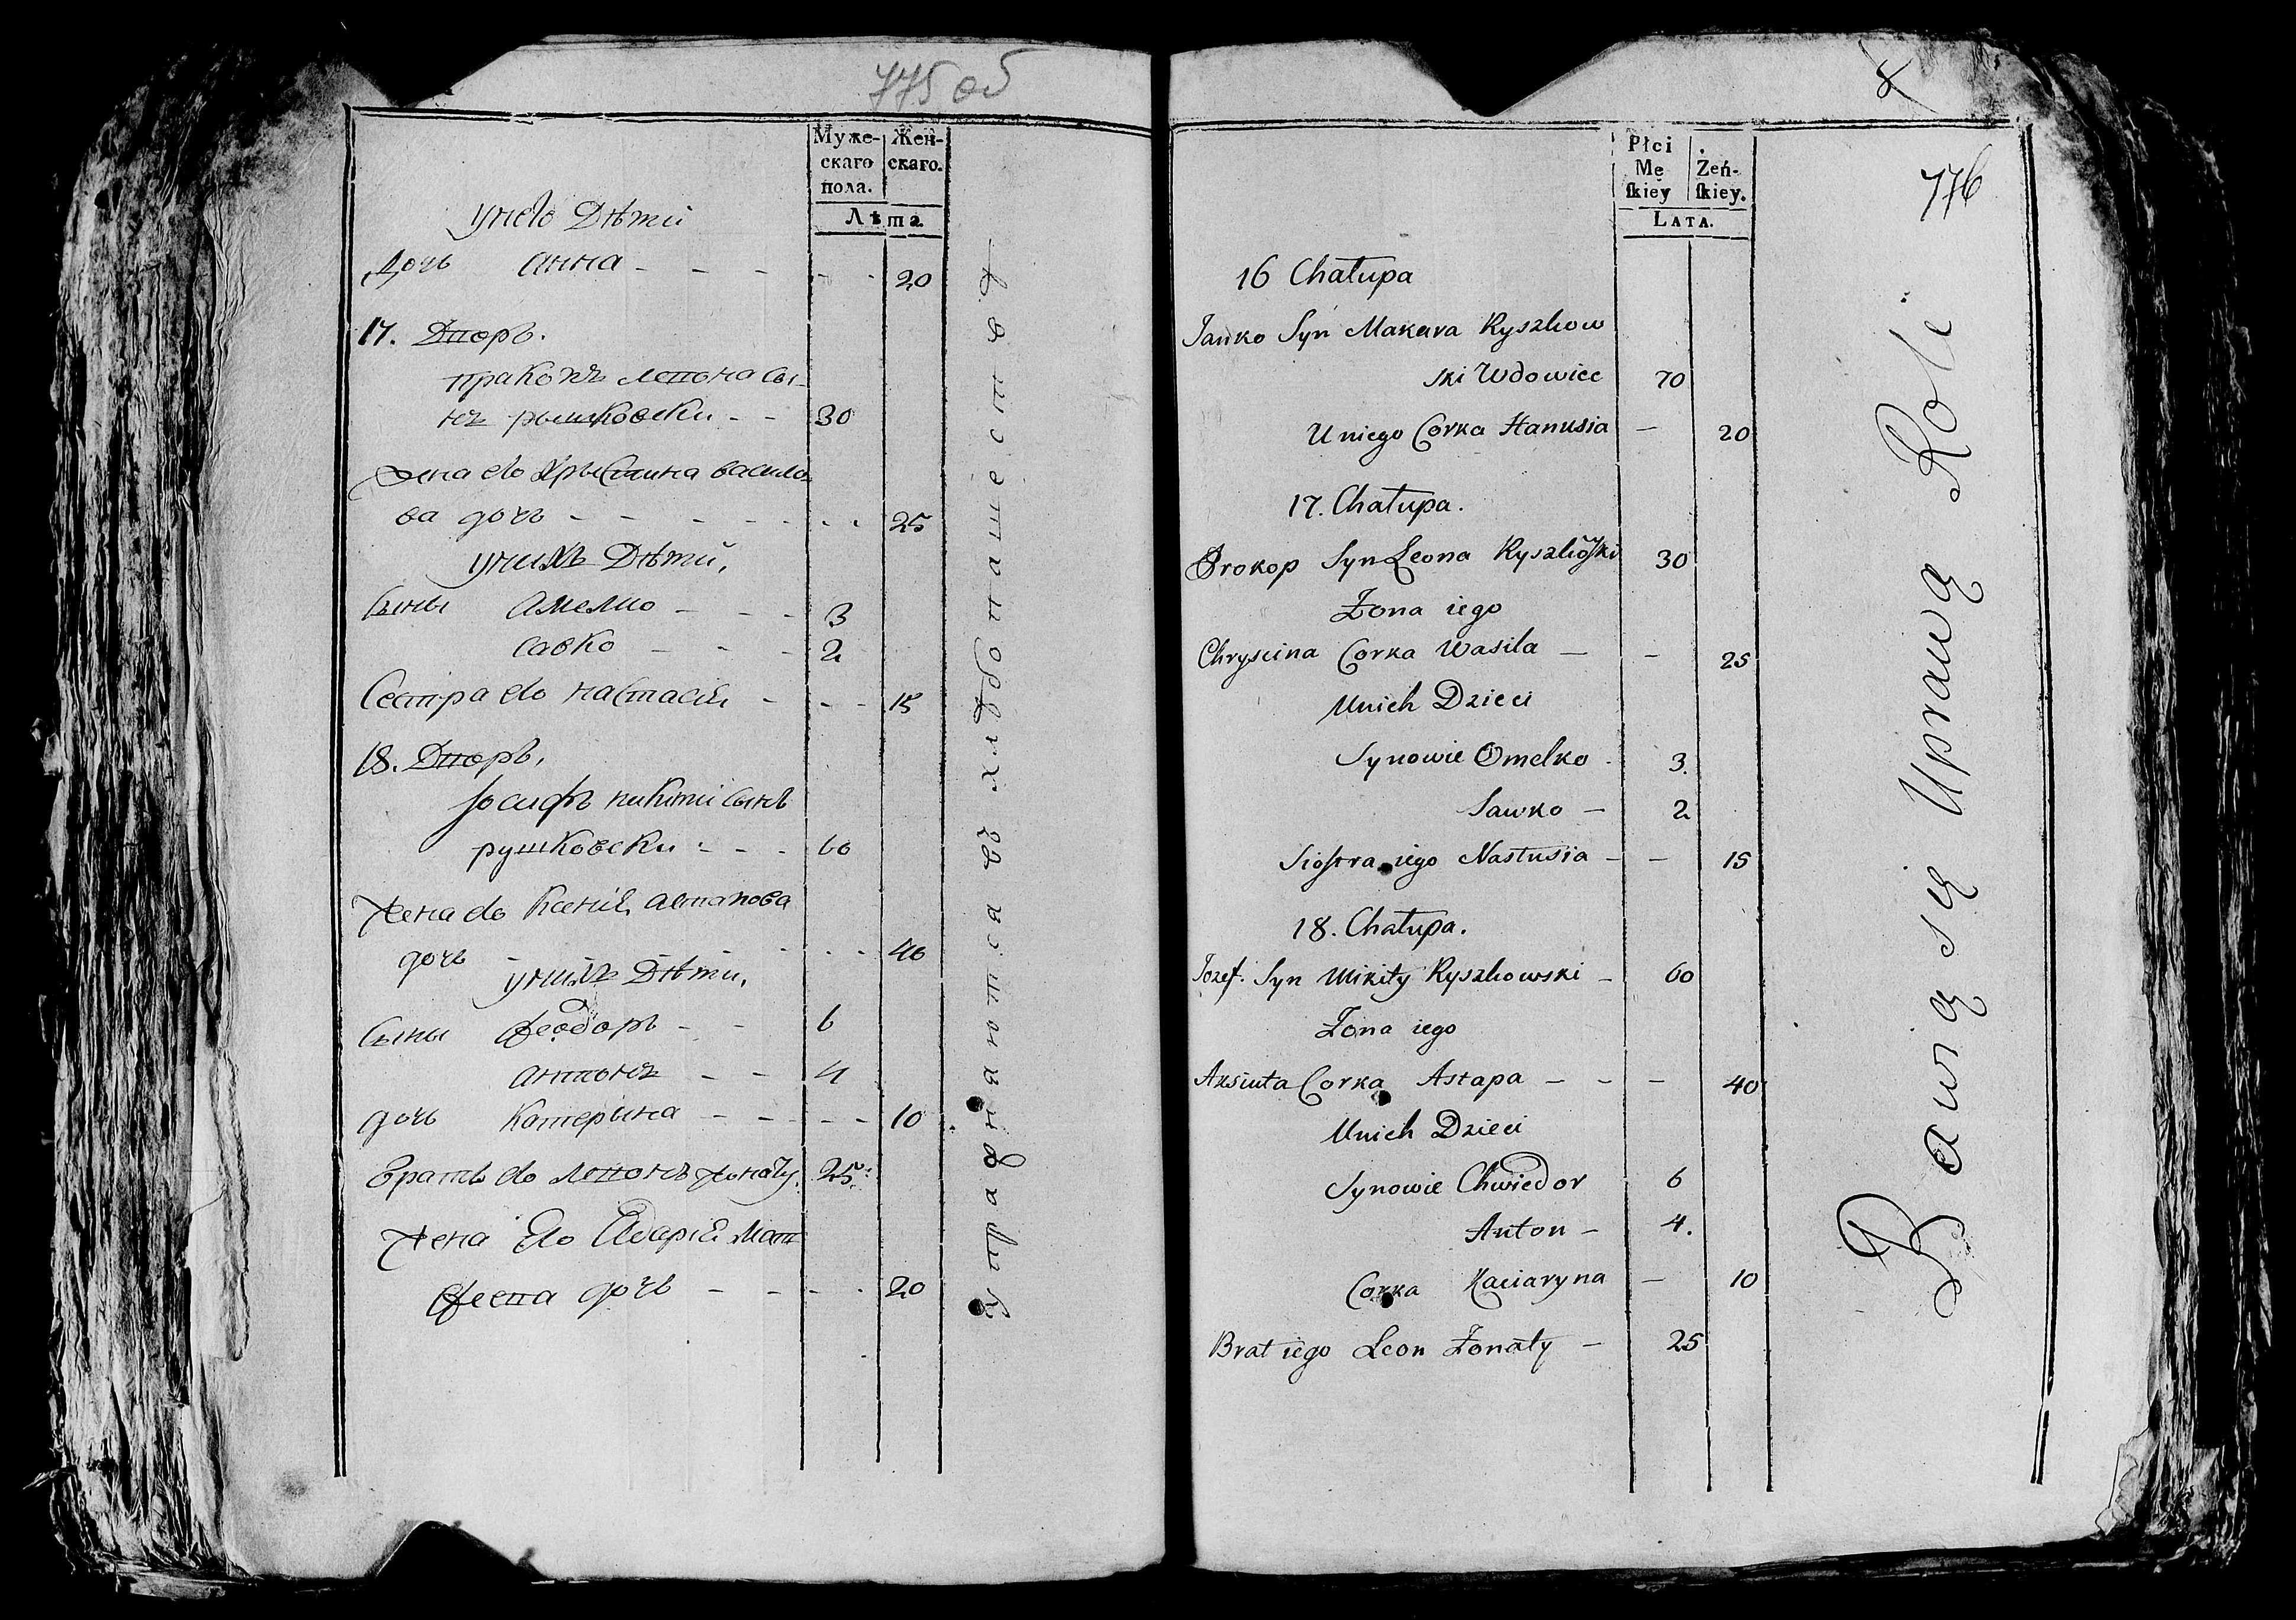 775 об
Муже-
скаго
пола.
Жен-
скаго.
Лѣта
унего Дѣти
Дочь Анна - - - - - 20
17. Дворъ.
пракопъ леона сы-
нъ рышковски - - 30
Жена его Хрыстина васило-
ва дочь - - - - - - 25
унихъ Дѣти,
Сыны Амелко - - - 3
Савко - - - 2
Сестра его настасия - - - 15
18. Дворъ,
Іосифъ никити сынъ
рушковски - - - 60
Жена его Ксения астапова
дочь - - - - - 40
унихъ Дѣти,
Сыны Феодоръ - - 6
Антонъ - - 4
дочь Катерина - - - - 10
Братъ его Леонъ жонаты 25
Жена Его Мат
феева дочь - - - - 20
8
776
Płci
Mę
skiey
Żeń-
skiey.
LATA.
16 Chałupa
Janko Syn Makara Ryszkow
ski Wdowiec 70
U niego Corka Hanusia — 20
17. Chałupa.
Prokop Syn Leona Ryszkowski 30
Żona iego
Chryscina Corka Wasila — — 25
Unich Dzieci
Synowie Omelko 3.
Sawko — 2
Siostra iego Nastusia — — 15
18. Chałupa.
Jozef. Syn Mikity Ryszkowski — 60
Żona iego
Aksiuta Corka Astapa — — — 40
Unich Dzieci
Synowie Chwiedor 6
Anton — 4.
Corka Kaciaryna — 10
Brat iego Leon Żonaty — 25
Bawią się Uprawą Roli